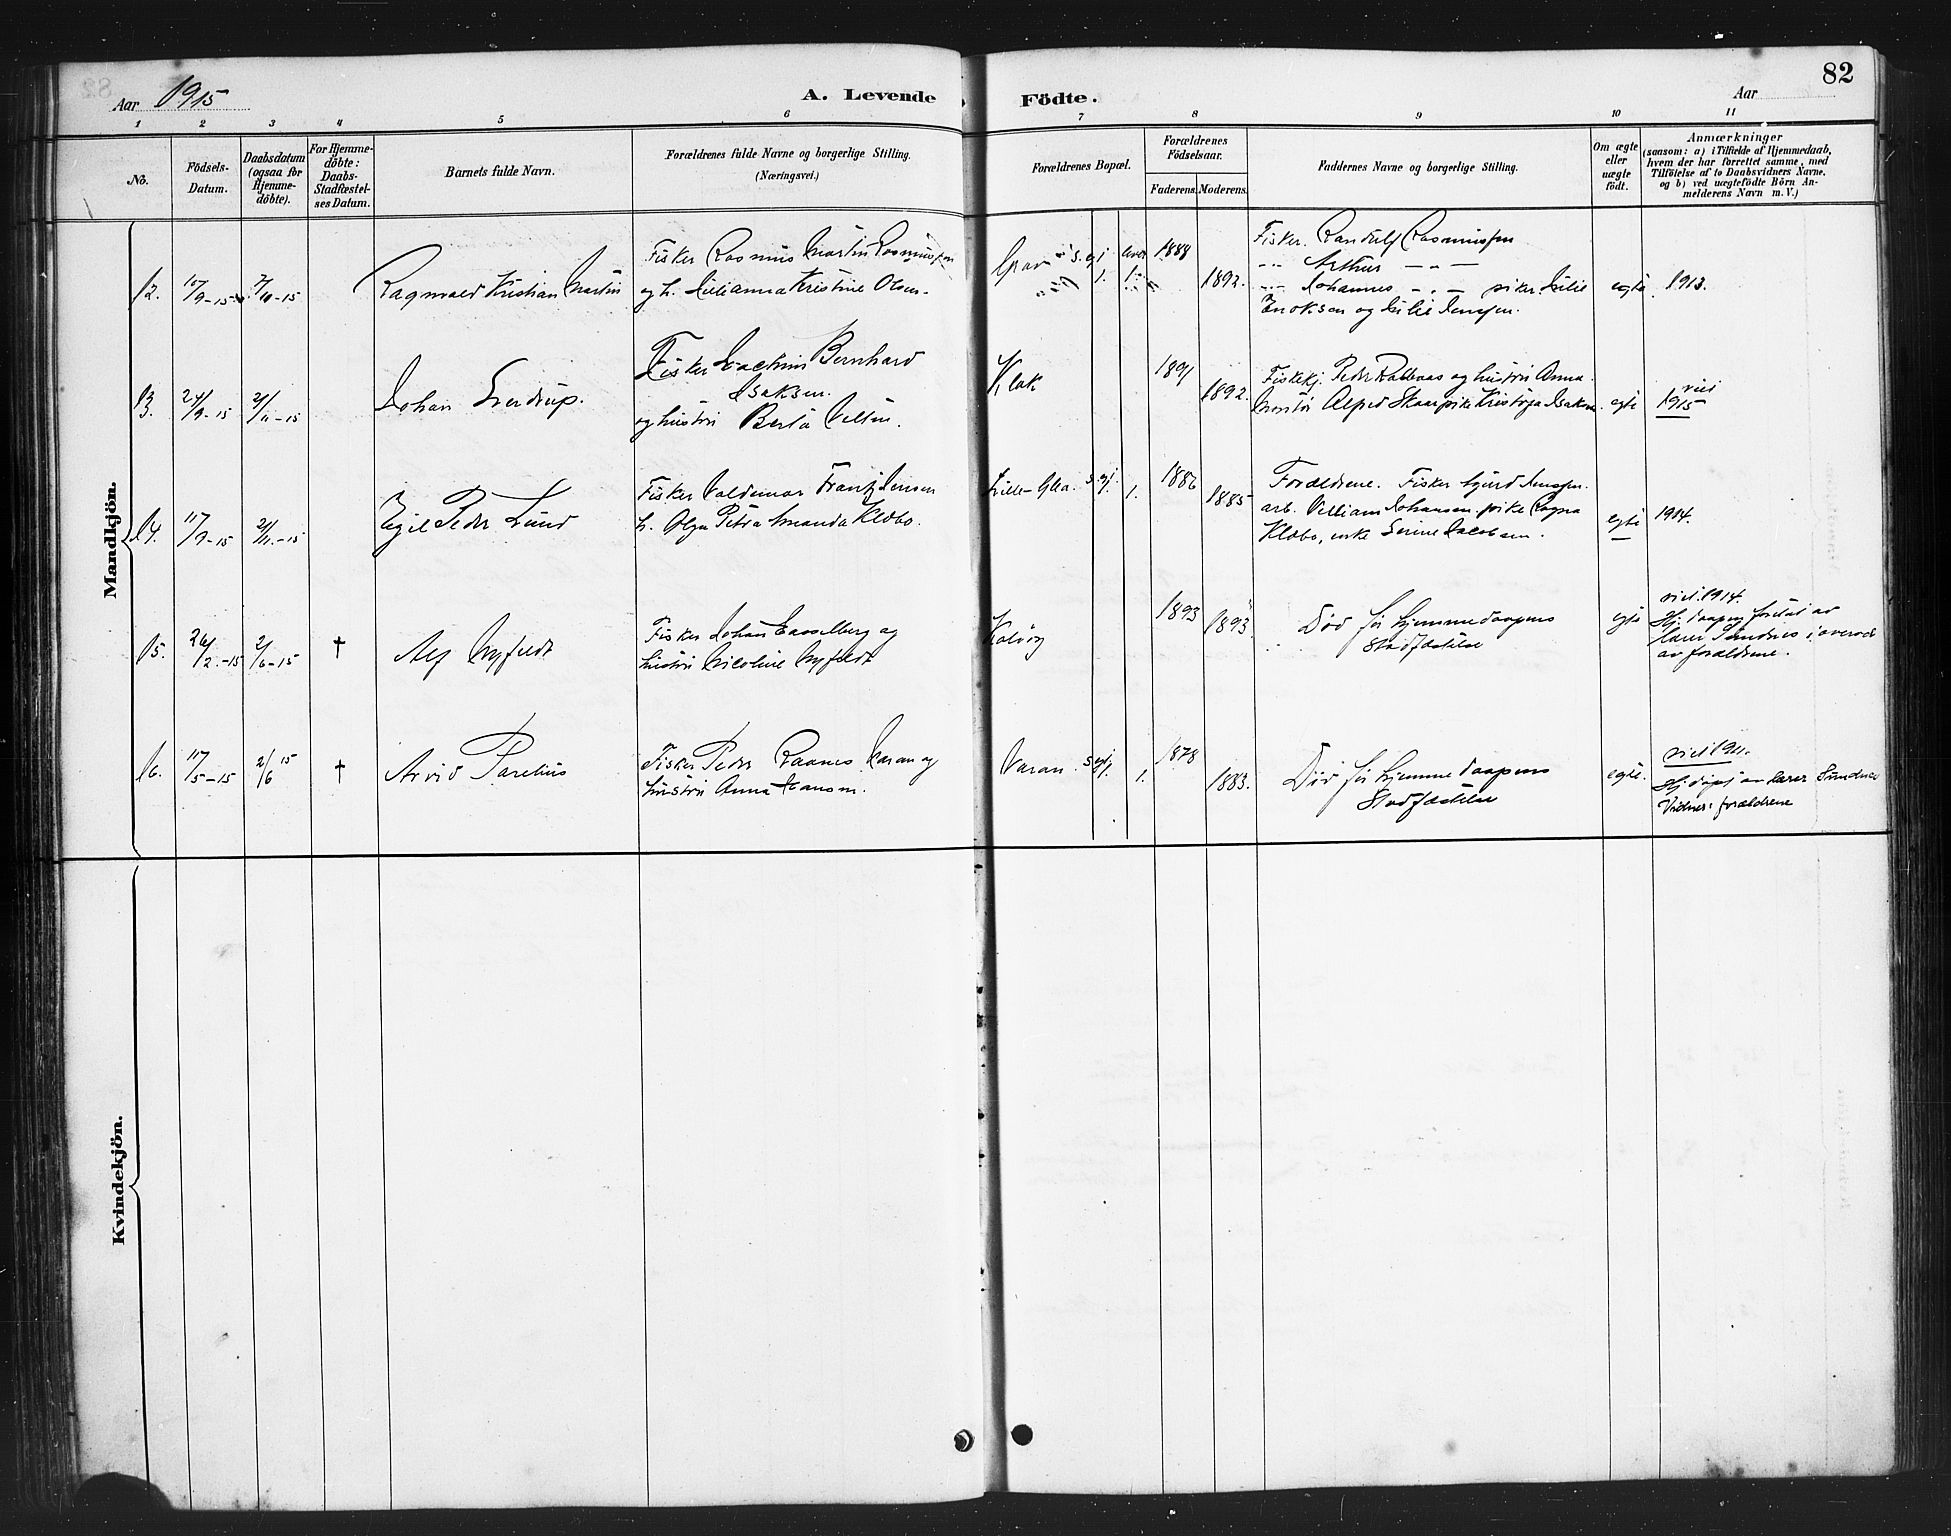 82
Aar 1915
A. Levende Födte.
Aar
1 2 3 4 5 6 7 8 9 10 11
No.
Födsels-
Datum.
Daabsdatum
(ogsaa for
Hjemme-
döbte).
For Hjemme-
döbte:
Daabs-
Stadfæstel-
ses Datum.
Barnets fulde Navn.
Forældrenes fulde Navne og borgerlige Stilling.
(Næringsvei.)
Forældrenes Bopæl.
Forældrenes
Födselsaar.
Faderens. Moderens.
Faddernes Navne og borgerlige Stilling.
Om ægte
eller
uægte
födt.
Anmærkninger
(saasom: a) i Tilfælde af Hjemmedaab,
hvem der har forrettet samme, med
Tilföielse af to Daabsvidners Navne,
og b) ved uægtefödte Börn An-
melderens Navn m. V.)
Mandkjön.
12.
Ragnvald Kristian Martin
Fisker Rasmus Martin Rasmussen
og h. Lilianna Kristine Olsen.
1888
1892.
Fisker Randulf Rasmussen
-"- Arthur -"-
-"- Johannes -"- piker Lilie
Enoksen og Lilie Jenssen.
egte
1913.
13.
Johan Sverdrup.
Fisker Joachim Bernhard
Isaksen.
og hustru Berta
1891
1892.
og hustru Anna
Alfred pike Isaksen.
egte
viet
1915
14.
Egil Peder Lund
Fisker Valdemar Frantz Jensen
h. Olga Petra Amanda Klæbo.
Lille-
1886
1885
Forældrene. Fisker Sjurd Jenssen.
arb. Villiam Johansen pike Ragna
Klæbo, enke Serine Jacobsen.
egte
1914.
15.
26/2-15
2/6-15
†
Alf Nyfeldt
Fisker Johan og
hustru Nicoline Nyfeldt
Kalvög
1893
1893
Död för hjemmedaapens
Stadfæstelse
egte
viet 1914.
Hj. daapen foretat av
lærer Sundnes i overvær
av forældrene.
16.
17/5-15
2/6 15
†
Arvid Parelius
Fisker Peder Raanes Varan og
hustru Anna Hansen.
Varan.
1.
1878
1883.
Död för hjemmedaapens
Stadfæstelse
egte.
viet 1911.
Hj. döpt av lærer Sundnes
Vidner: forældrene
Kvindekjön.